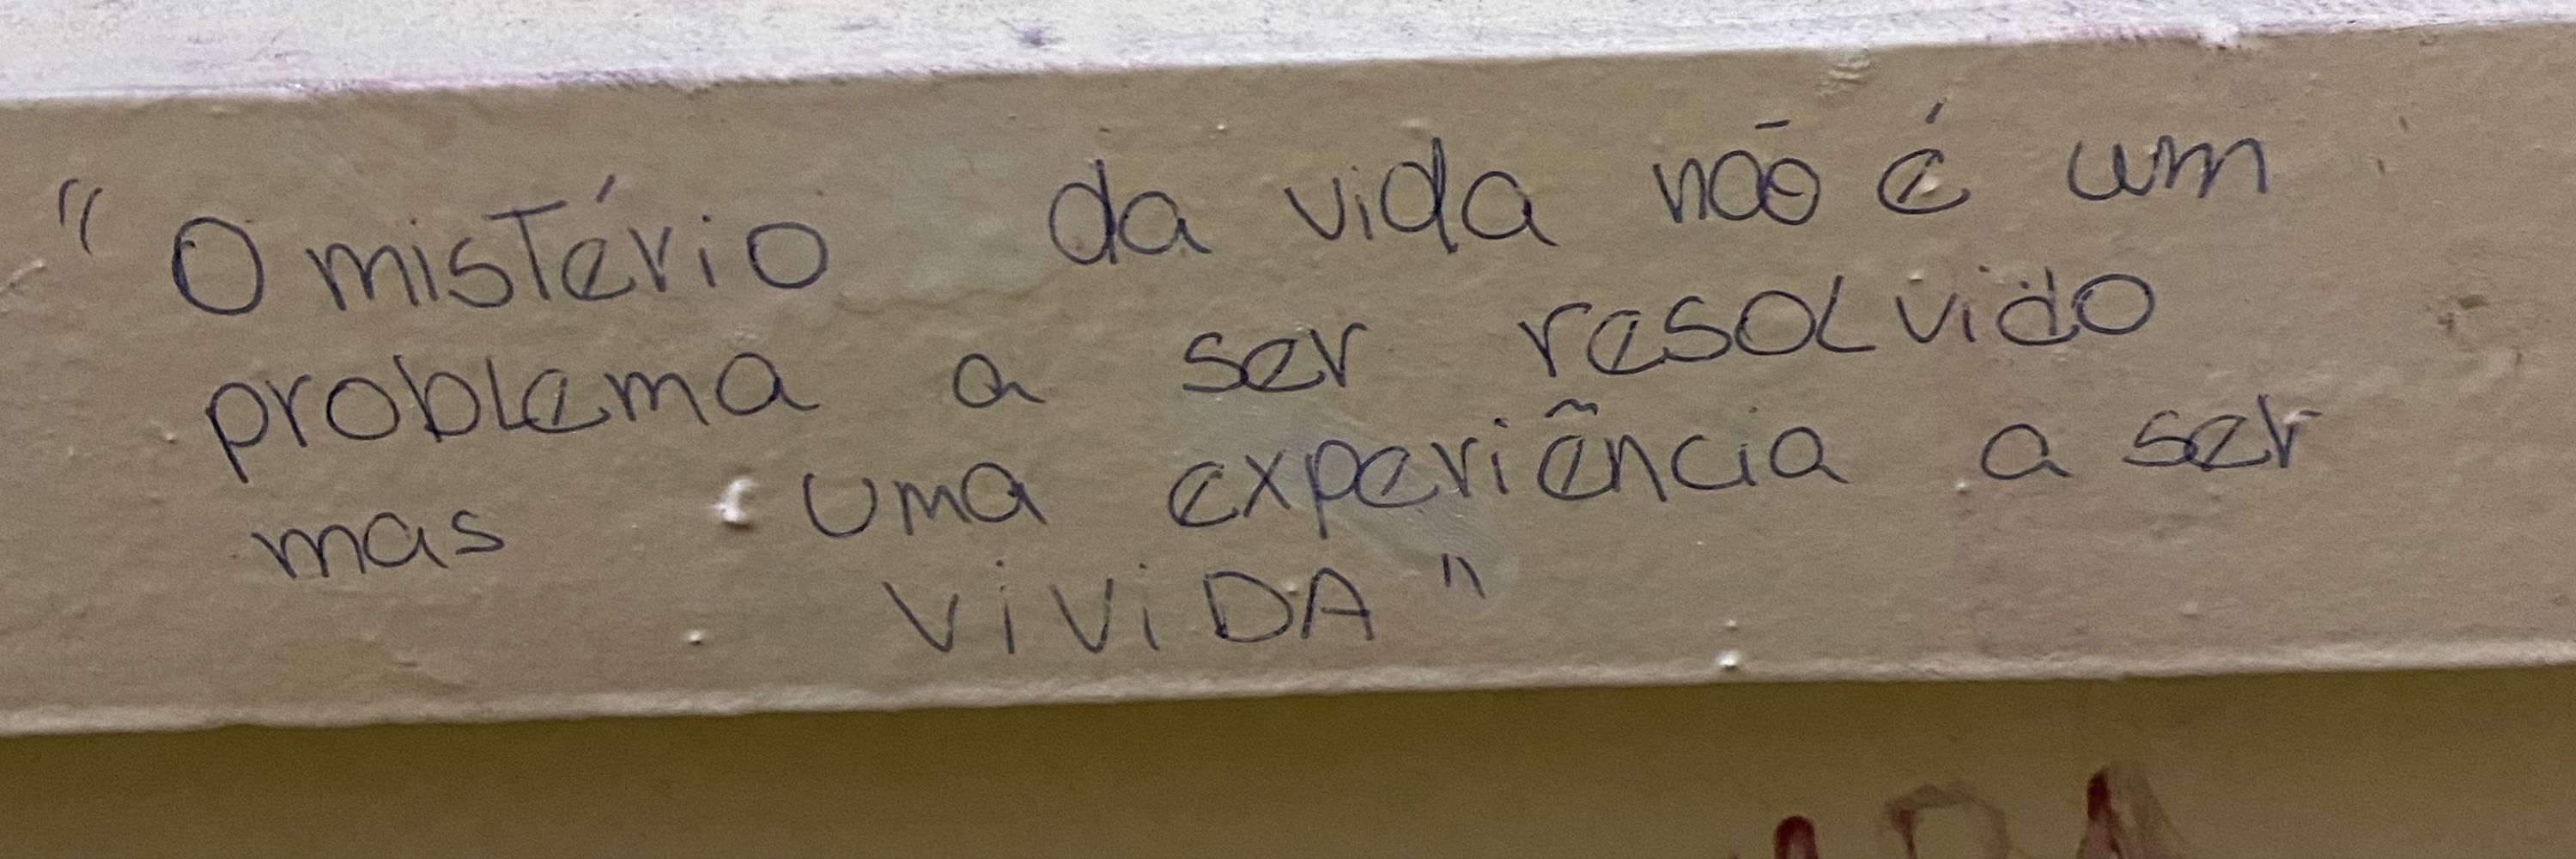 "O misTério da vida não é um
problema a ser resoLvido
mas uma experiência a ser
ViViDA"